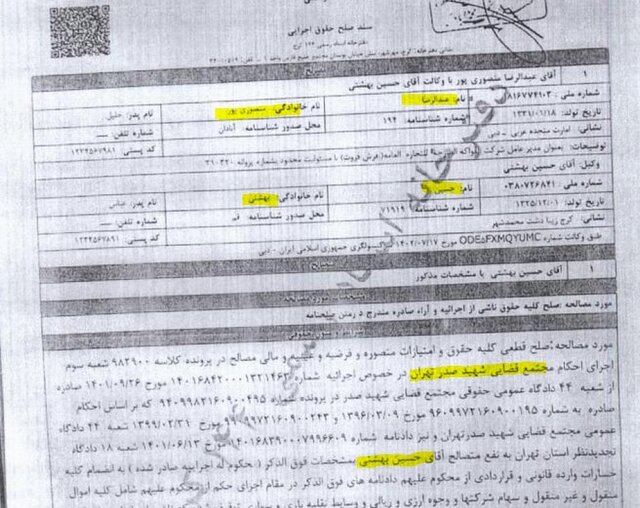 سند صلح حقوق اجرایی
۱ آقای عبدالرضا منصوری پور با وکالت آقای حسین بهشتی
شماره ملی : ۸۱۶۷۷۴۹۰۳ نام: عبدالرضا نام خانوادگی: منصوری پور نام پدر: خلیل
تاریخ تولد: ۱۳۳۱/۰۶/۱۸ شماره شناسنامه: ۱۹۴ محل صدور شناسنامه: آبادان شماره تلفن: ---
نشانی: امارت متحده عربی - دبی کد پستی: ۱۲۳۴۵۶۷۹۸۱
توضیحات: بعنوان مدیر عامل شرکت للتجاره العامه(فرش فروت) با مسئولیت محدود بشماره پروانه ۳۱۰۳۲۰
وکیل: آقای حسین بهشتی
شماره ملی: ۰۳۸۰۷۲۶۸۴۱ نام: حسین نام خانوادگی: بهشتی نام پدر: عباس
تاریخ تولد: ۱۳۲۵/۱۲/۰۱ شماره شناسنامه: ۷۱۹۱۹ محل صدور شناسنامه: قم شماره تلفن: ---
نشانی: کرج زیبا دشت محمدشهر کد پستی: ۱۲۳۴۵۶۷۸۹۱
طبق وکالت شماره ODE۵FXMQYUMC مورخ ۱۴۰۲/۰۷/۱۷ کنسولگری جمهوری اسلامی ایران - دبی
۱ آقای حسین بهشتی با مشخصات مذکور
مشخصات مورد مصالحه
مورد مصالحه :صلح کلیه حقوق ناشی از اجرائیه و آراء صادره مندرج د رمتن صلحنامه
مورد مصالحه:صلح قطعی کلیه حقوق و امتیازات متصوره و فرضیه و عینیه و مالی مصالح در پرونده کلاسه ۹۸۲۹۰۰ شعبه سوم
اجرای احکام مجتمع قضایی شهید صدر تهران در خصوص اجرائیه شماره ۱۴۰۱۶۸۴۲۰۰۰۱۳۲۱۴۶۳ مورخ ۱۴۰۱/۰۹/۲۶ صادره
از شعبه ۴۴ دادگاه عمومی حقوقی مجتمع قضایی شهید صدر در پرونده شماره ۹۴۰۹۹۸۲۱۶۰۹۰۰۴۹۵ که بر اساس احکام
صادره به شماره ۹۶۰۹۹۷۲۱۶۰۹۰۰۱۹۵ مورخ ۱۳۹۶/۰۳/۰۹ و ۹۹۰۹۹۷۲۱۶۰۹۰۰۲۴۳ مورخ ۱۳۹۹/۰۲/۳۱ شعبه ۴۴ دادگاه
عمومی مجتمع قضایی شهید صدرتهران و نیز دادنامه شماره ۱۴۰۱۶۸۳۹۰۰۰۷۹۹۶۶۰۹ مورخ ۱۴۰۱/۰۶/۱۳ شعبه ۱۸ دادگاه
تجدیدنظر استان تهران به نفع متصالح آقای حسین بهشتی بمشخصات فوق الذکر ( محکوم له اجراییه صادر شده ) به انضمام کلیه
خسارات وارده قانونی و قراردادی از محکوم علیهم دادنامه های فوق الذکر در مقام اجرای حکم از محکوم علیهم شامل کلیه اموال
منقول و غیر منقول و سهام شرکتها و وجوه ارزی و ریالی و وسایط نقلیه